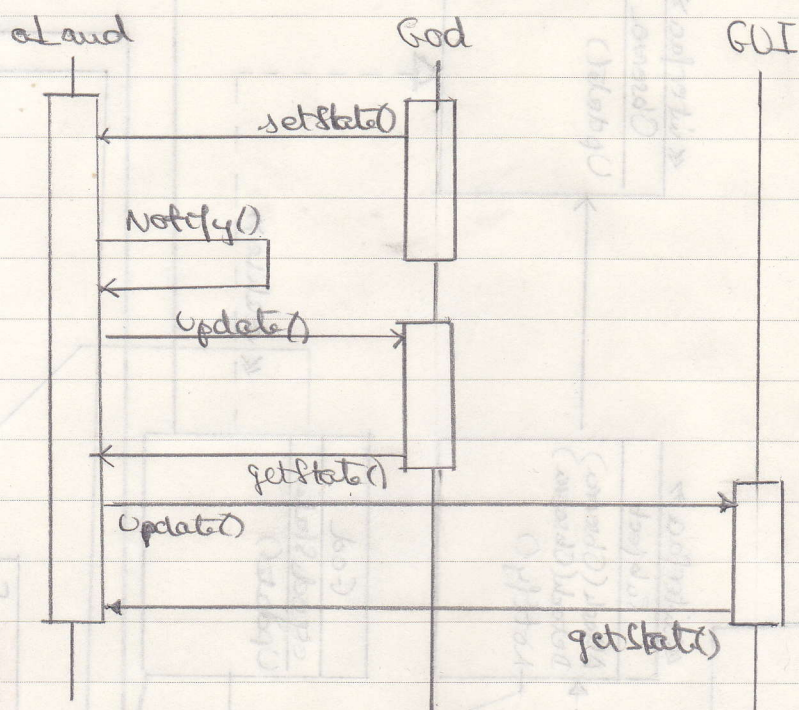 aLand God GUI
setState()
Notify()
Update()
getState()
Update()
getState()